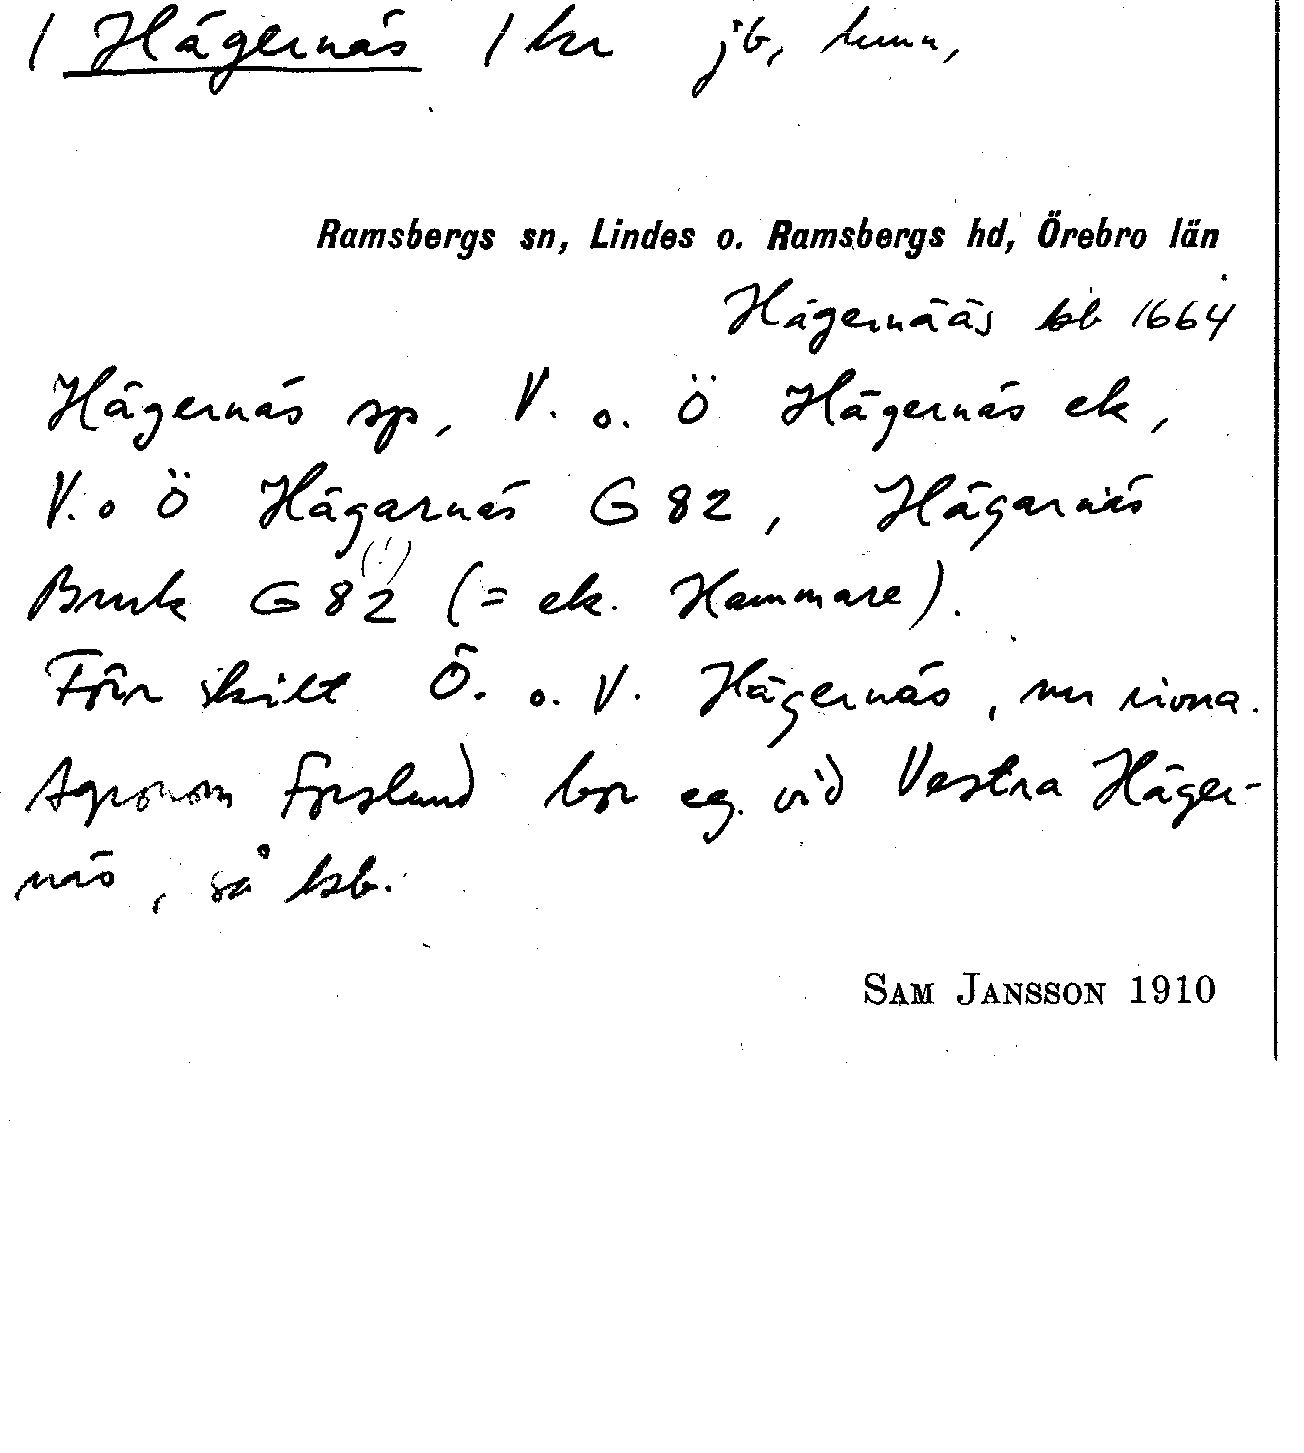 / Hägernäs / kr jb,
Ramsbergs sn, Lindes o. Ramsbergs hd, Örebro län
Hägernääs kb 1664
Hägernäs sp, V. o. Ö Hägernäs ek,
V. o Ö Hägarnäs G 82, Hägarnäs
(!)
Bruk G 82 (= ek. Hammare).
Förr skilt Ö. o. V. Hägernäs, nu rivna.
Agronom Forslund bor eg. vid Vestra Häger-
näs, så kb.
SAM JANSSON 1910